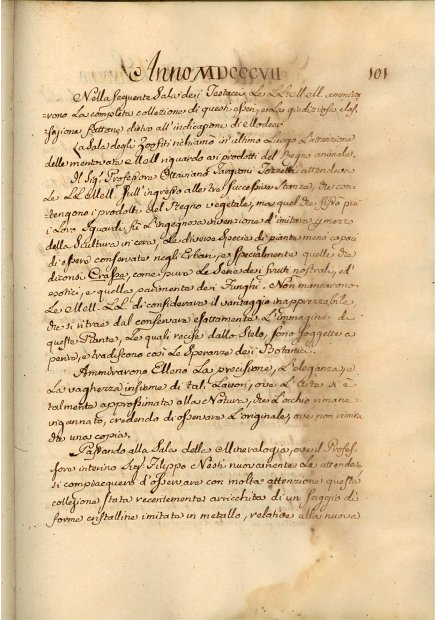 Anno MDCCCVII
101
Nella seguente Sala dei Testacei Le LL. MM. ammira
rono La completa collezione di questi esseri, e La giudiziosa clas
sazione fattane dietro all'indicazioni di
La Sala degli Zoofiti richiamò in ultimo Luogo L'attenzione
delle mentovate MM. riguardo ai prodotti del Regno animale.
Il Sig.r Professore Ottaviano Targioni Tozzetti attendeva
Le LL. MM. sull'ingresso alle tre successive Stanze, che con
tengono i prodotti del Regno vegetale, ma quel che fissò più
i Loro Sguardi, fù L'ingegnosa invenzione d'imitare p. mezzo
della Scultura in cera, Le diverse Specie di piante meno capaci
di essere conservate negli Erbari, e specialmente quelle che
diconsi Crasse, come pure La Serie dei frutti nostrali, ed
esotici, e quella parimente dei Funghi. Non mancarono
Le MM. LL. di considerare il vantaggio inapprezzabile,
che si ritrae dal conservare esattamente L'immagine di
queste Piante, Le quali recise dallo Stelo, sono soggette a
perire, e tradiscono così Le Speranze dei Botanici.
Ammirarono Elleno La precisione, L'eleganza, e
La vaghezza insieme di tali Lavori, ove L'Arte si è
talmente approssimata alla Natura, che L'occhio rimane
ingannato, credendo di osservare L'originale, ove non rimira
che una copia.
Passando alla Sala della Mineralogia, ove il Profes
sore interino Sig. Filippo Nesti nuovamente Le attendeva
si compiacquero d'osservare con molta attenzione questa
collezione stata recentemente arricchita di un Saggio di
forme cristalline imitate in metallo, relative alla nuova